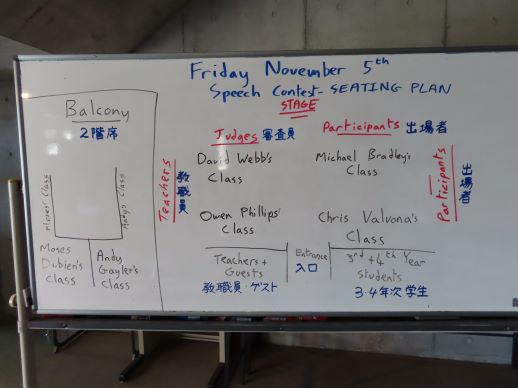 Friday November 5th
Speech Contest - SEATING PLAN
STAGE
Balcony
2階席
Judges 審査員
Participants 出場者
Teachers
教職員
David Webb's
Class
Michael Bradley's
Class
Participants
出場者
Class
Andy's Class
Owen Phillips'
Class
Chris Valvona's
Class
Moses
Dubien's
Class
Andy
Gayler's
Class
Teachers +
Guests
教職員・ゲスト
Entrance
入口
3rd + 4th Year
Students
3・4年次学生